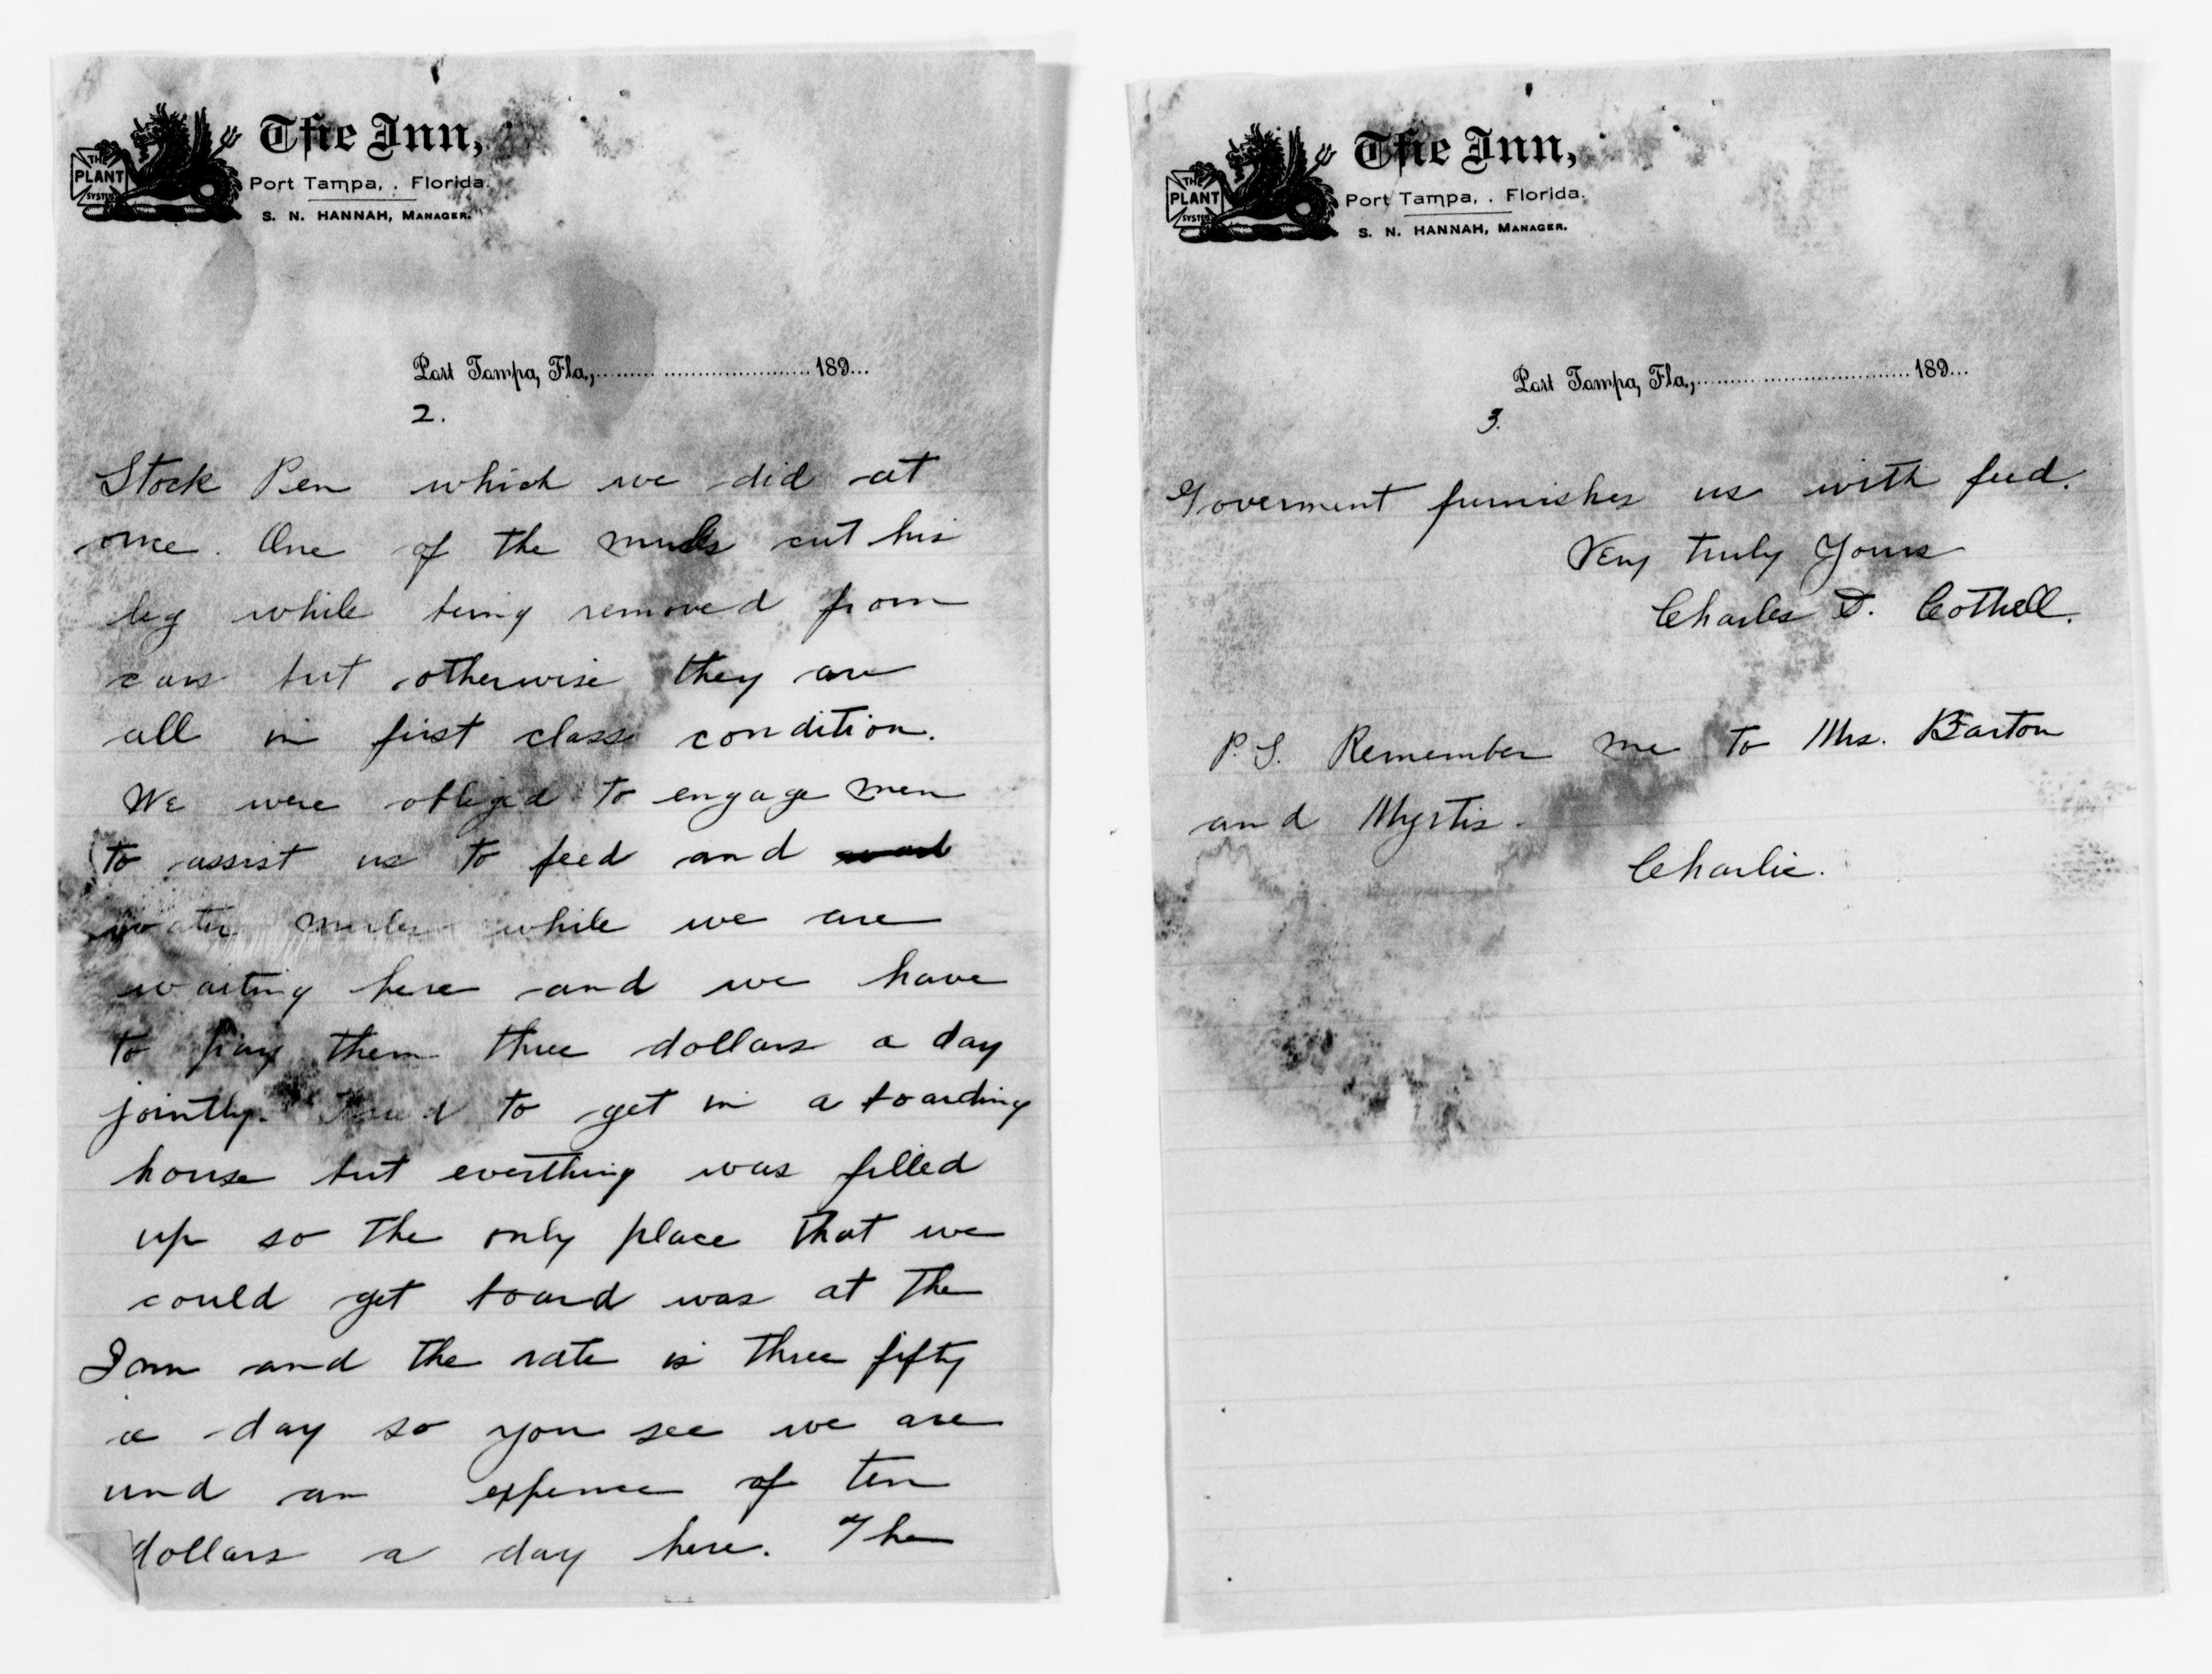 THE
PLANT
SYSTEM
The Inn,
Port Tampa, . Florida.
S. N. HANNAH, MANAGER.
Port Tampa, Fla., 189...
2.
Stock Pen which we did at
once. One of the mules cut his
leg while being removed from
cars but otherwise they are
all in first class condition.
We were obliged to engage men
to assist us to feed and
water mules while we are
waiting here and we have
to pay them three dollars a day
jointly. Tried to get in a boarding
house but everthing was filled
up so the only place that we
could get board was at the
Inn and the rate is three fifty
a day so you see we are
und an expence of ten
dollars a day here. The
THE
PLANT
SYSTEM
The Inn,
Port Tampa, . Florida.
S. N. HANNAH, MANAGER.
Port Tampa, Fla., 189...
3.
Goverment furnishes us with feed.
Very truly Yours
Charles D. Cottrell.
P.S. Remember me to Mrs. Barton
and Myrtis.
Charlie.